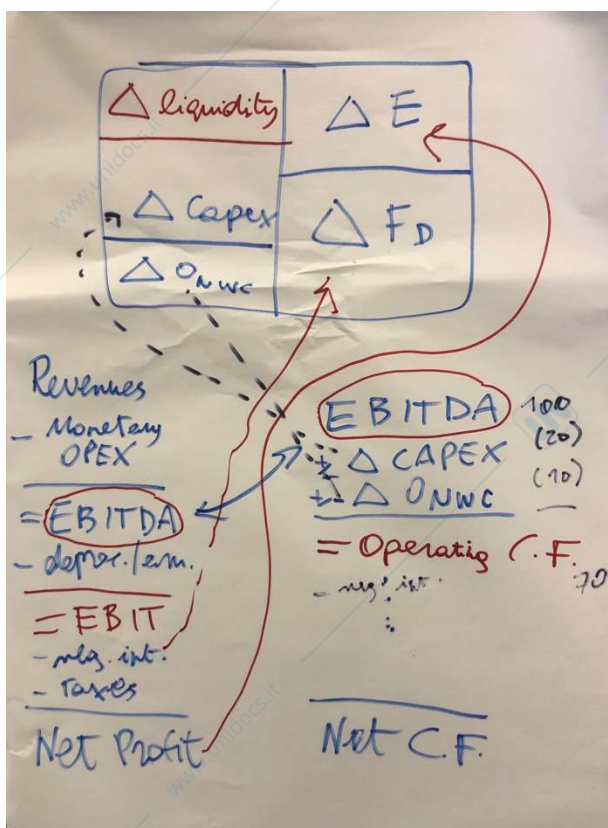 △ liquidity
△ E
△ Capex
△ FD
△ ONWC
Revenues
- Monetary
OPEX
= EBITDA
- deprec./am.
= EBIT
- neg. int.
- Taxes
Net Profit
EBITDA 100
+- △ CAPEX (20)
+- △ ONWC (10)
= Operating C.F. 70
- neg. int.
Net C.F.
www.unidocs.it